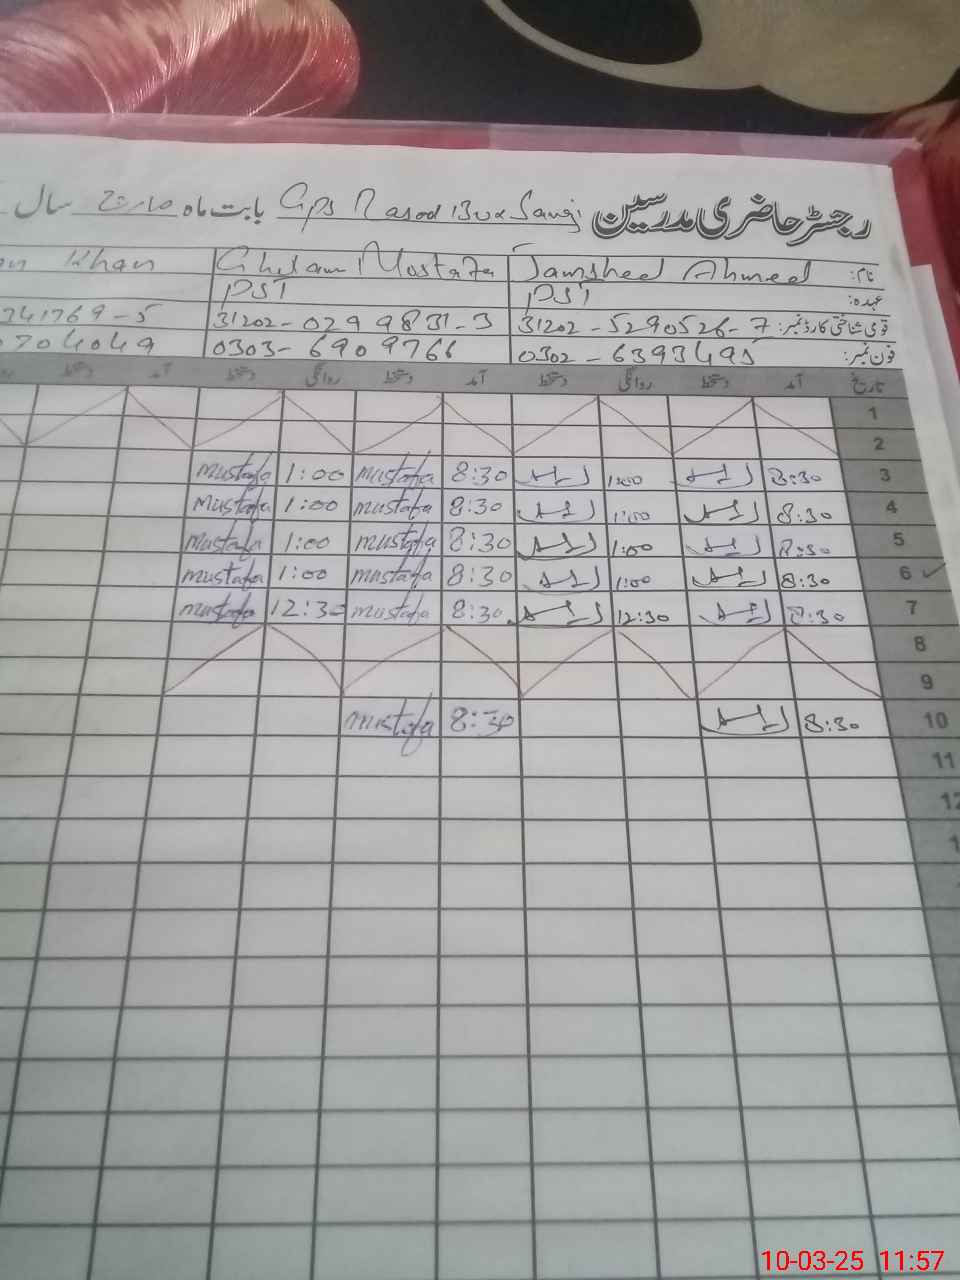 رجسٹر حاضری مدرسین GPS Rasool Bux Sangi بابت ماہ مارچ سال
نام: Jamsheed Ahmed Ghulam Mustafa Khan
عہدہ: PST PST
قومی شناختی کارڈ نمبر: 31202-5290526-7 31202-0299831-3 341769-5
فون نمبر: 0302-6393495 0303-6909766 704049
تاریخ آمد دستخط روانگی دستخط آمد دستخط روانگی دستخط آمد دستخط
1
2
3 8:30 1:00 8:30 mustafa 1:00 mustafa
4 8:30 1:00 8:30 mustafa 1:00 mustafa
5 8:30 1:00 8:30 mustafa 1:00 mustafa
6 8:30 1:00 8:30 mustafa 1:00 mustafa
7 8:30 12:30 8:30 mustafa 12:30 mustafa
8
9
10 8:30 8:30 mustafa
11
12
10-03-25 11:57